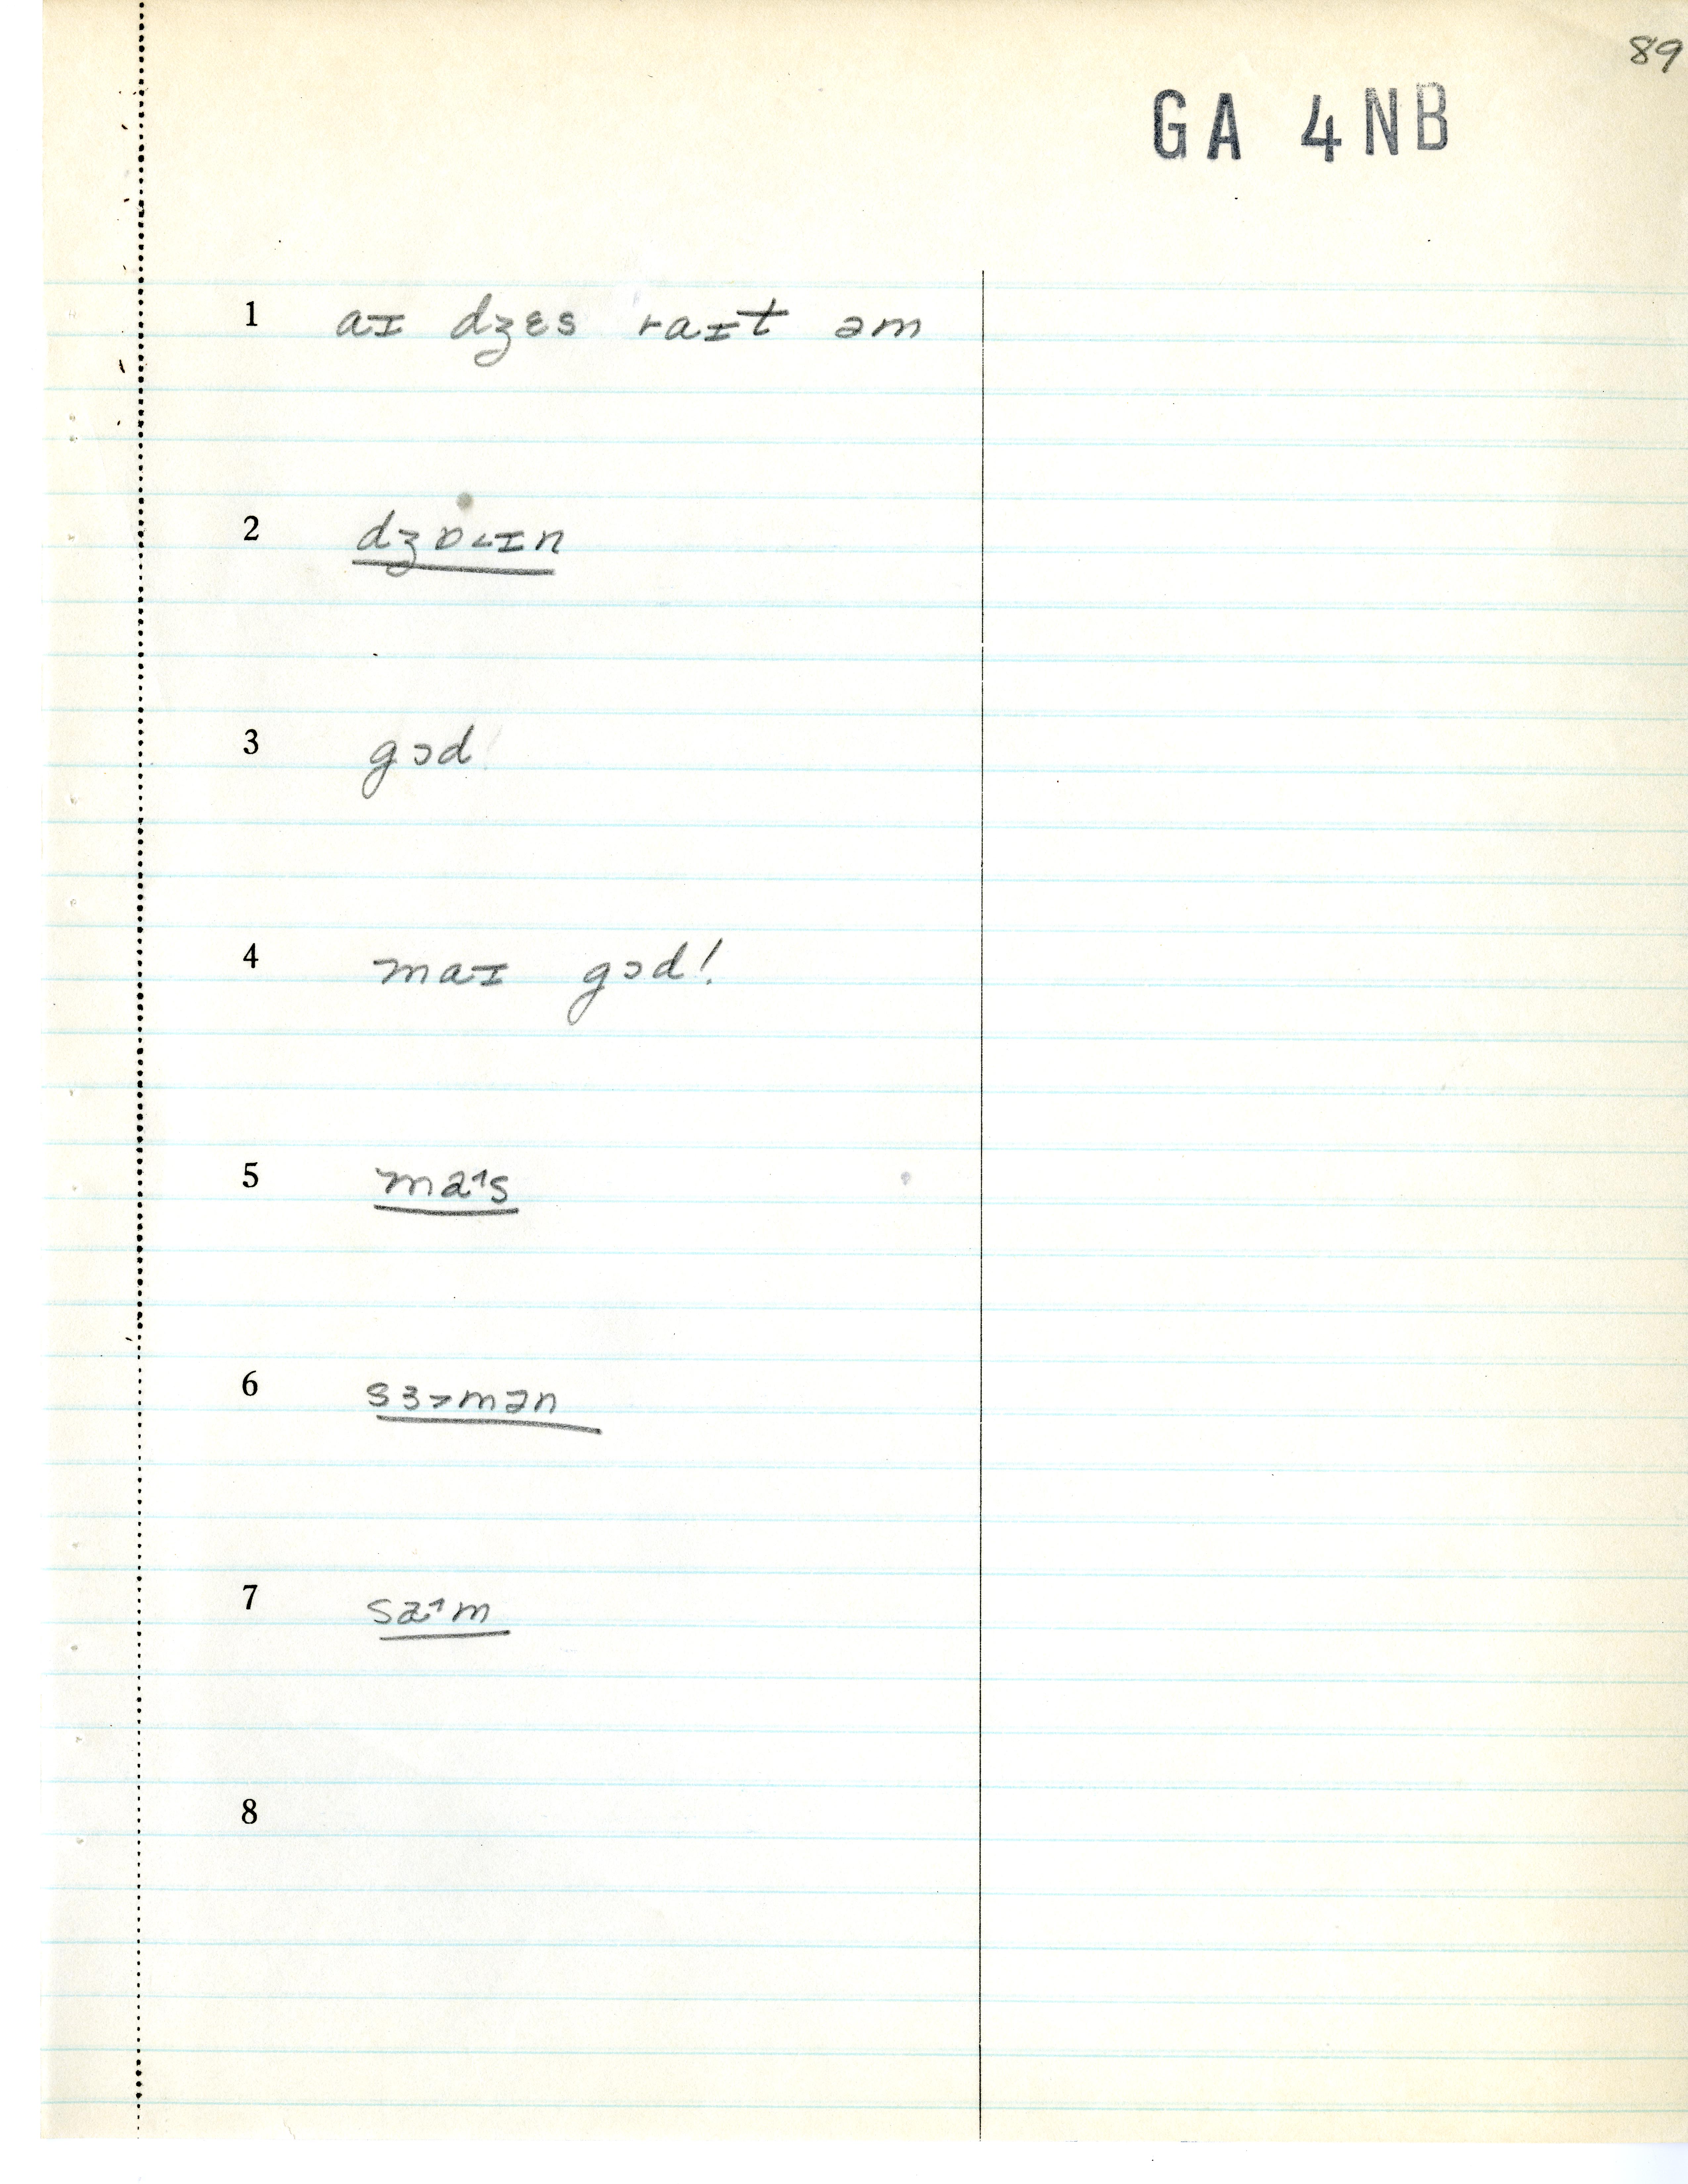 89
GA 4NB
1 aɪ dʒɛs raɪt əm
2 dʒɒ˂ɪn
3 gɔd
4 maɪ gɔd!
5 ma˄s
6 sɜ˃mən
7 sa˄m
8